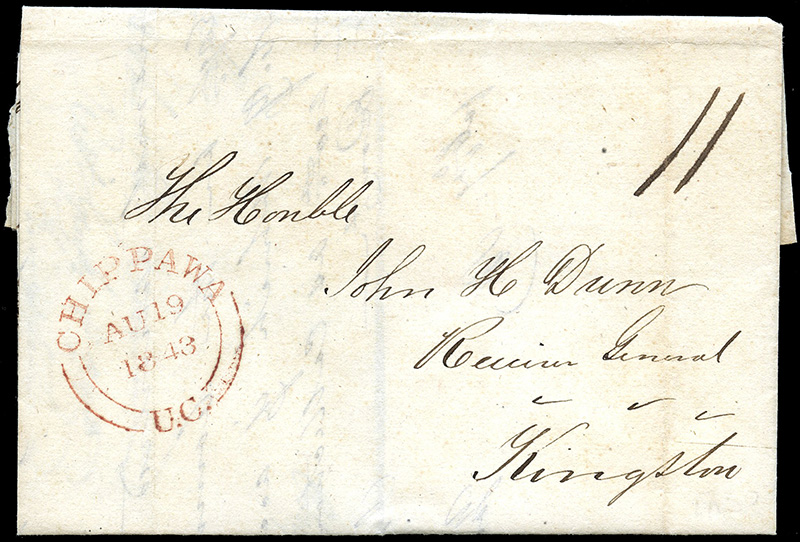 11
The Honble
John H Dunn
Receiver General
Kingston
CHIPPAWA
AU 19
1843
U.C.